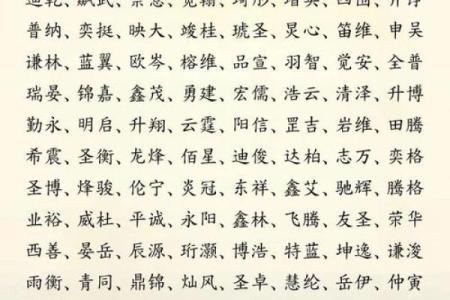 普纳、奕挺、映大、竣桂、琥圣、炅心、笛维、申吴
谦林、蓝翼、欧岑、榕维、品宣、羽智、觉安、全普
瑞晏、锦嘉、鑫茂、勇建、宏儒、浩云、清泽、升博
勤永、明启、升翔、云霆、阳信、罡吉、岩维、田腾
希震、圣衡、龙烽、佰星、迪俊、达柏、志万、奕格
圣博、烽骏、伦宁、炎冠、东祥、鑫艾、驰辉、腾格
业裕、威杜、平诚、永阳、鑫林、飞腾、友圣、荣华
西善、晏岳、辰源、珩灏、博浩、特蓝、坤逸、谦浚
雨衡、青同、鼎锦、灿风、圣卓、慧纶、岳伊、仲寅